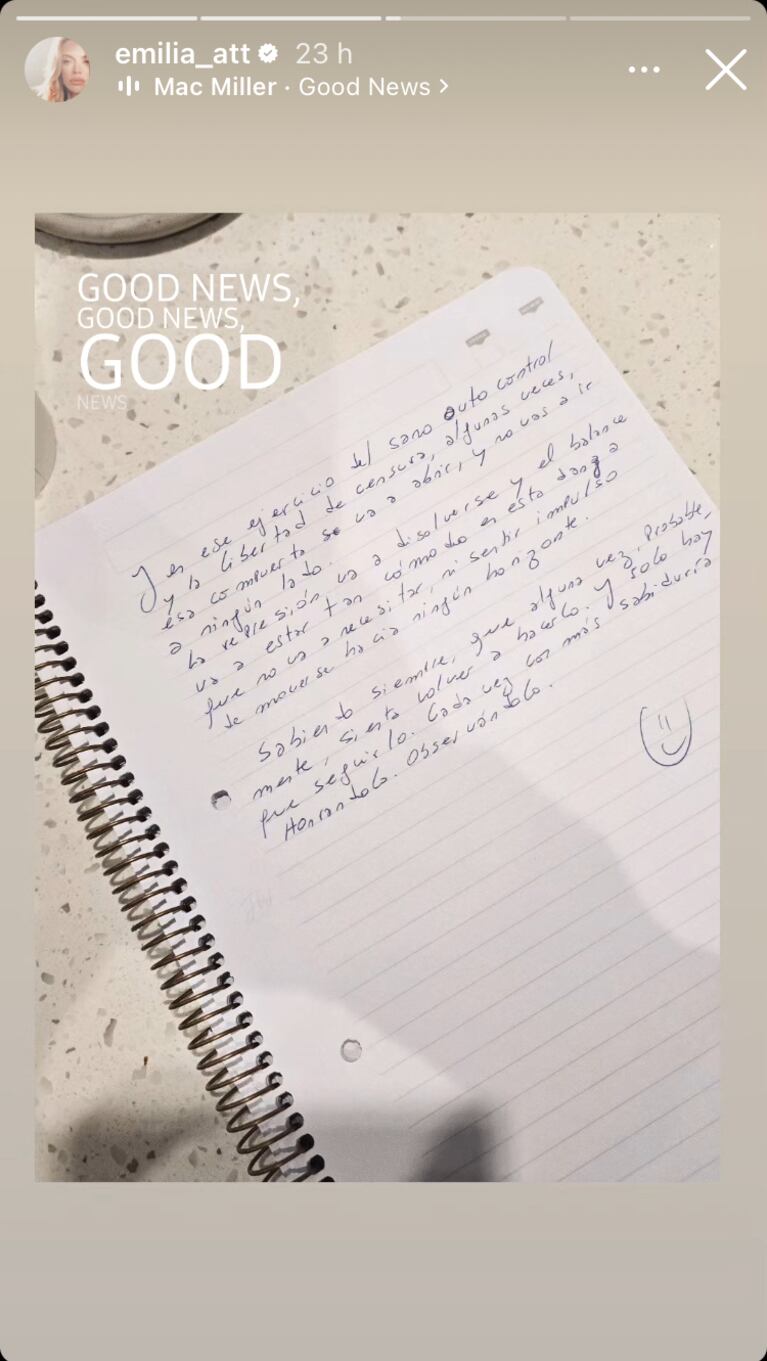 emilia_att 23 h
Mac Miller · Good News >
GOOD NEWS,
GOOD NEWS,
GOOD
NEWS
Y en ese ejercicio del sano auto control
y la libertad de censura, algunas veces,
esa compuerta se va a abrir, y no vas a ir
a ningún lado.
La represión va a disolverse y el balance
va a estar tan cómodo en esta danza
que no va a necesitar, ni sentir impulso
de moverse hacia ningún horizonte.
Sabiendo siempre, que alguna vez, probable_
mente, sienta volver a hacerlo. Y solo hay
que seguirlo. Cada vez con más sabiduría
Honrandolo. Observándolo.